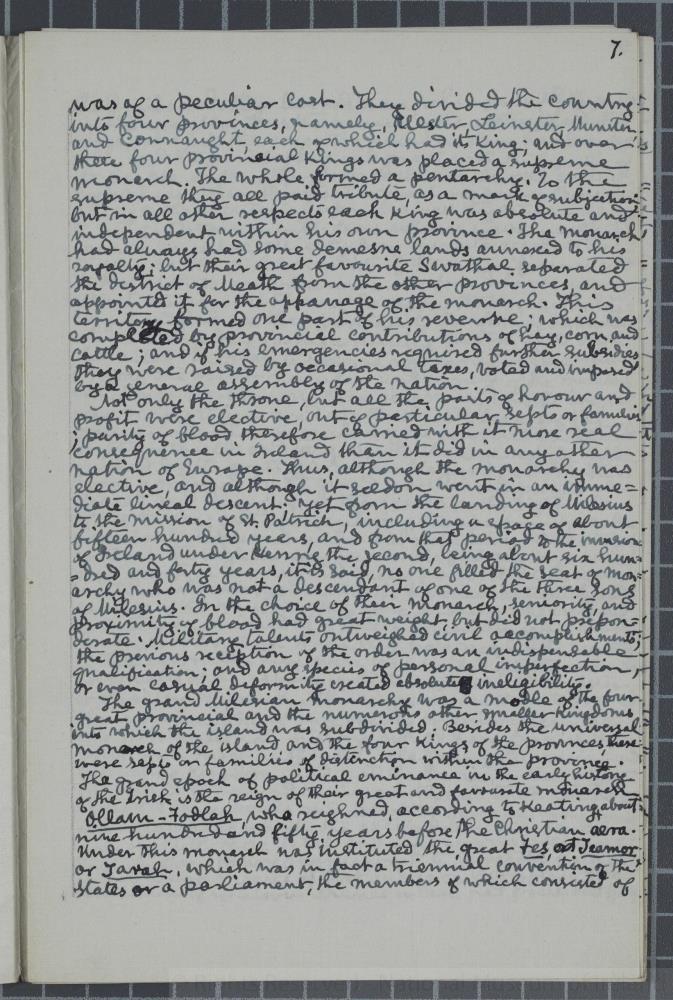 7.
was of a peculiar cast. They divided the country
into four provinces, namely, Ulster, Leinster, Munster
and Connaught, each of which had its King; and over
these four provincial Kings was placed a supreme
monarch. The whole formed a pentarchy. To the
supreme they all paid tribute, as a mark of subjection
but in all other respects each King was absolute and
independent within his own province. The monarch
had always had some demesne lands annexed to his
royalty; but their great favourite Swathal separated
the district of Meath from the other provinces, and
appointed it for the appanage of the monarch. This
territory formed one part of his reverse; which was
completed by provincial contributions of hay, corn and
cattle; and if his emergencies required further subsidies
they were raised by occasional taxes, voted and imposed
by a general assembly of the nation.
Not only the throne, but all the parts of honour and
profit were elective, out of particular septs or families
; purity of blood therefore carried with it more real
consequence in Ireland than it did in any other
nation of Europe. Thus, although the monarchy was
elective, and although it seldon went in an imme=
diate lineal descent: yet from the landing of Milesius
to the mission of St. Patrick, including a space of about
fifteen hundred years, and from that period to the invasion
of Ireland under Henry the second, being about six hun=
=dred and forty years, it is said, no one filled the seat of mon=
archy who was not a descendant of one of the three sons
of Milesius. In the choice of their monarch, seniority, and
proximity of blood had great weight, but did not prepon=
derate. Military talents outweighed civil accomplishments;
the previous reception of the order was an indispensable
qualification; and any species of personal imperfection,
or even casual deformity created absolute ineligibility.
The grand Milesian monarchy was a modle of the four
great provincial and the numerous other smaller Kingdoms
into which the island was subdivided. Besides the universal
monarch of the island and the four Kings of the provinces, there
were septs or families of distinction within the province.
The grand epoch of political eminance in the early history
of the Irish is the reign of their great and favourate monarch
Ollam-Fodlah, who reighned, according to Keating, about
nine hundred and fifty years before the Christian aera.
Under this monarch was instituted the great Fes, at Teamor
or Tarah, which was in fact a triennial convention of the
states or a parliament, the members of which consisted of